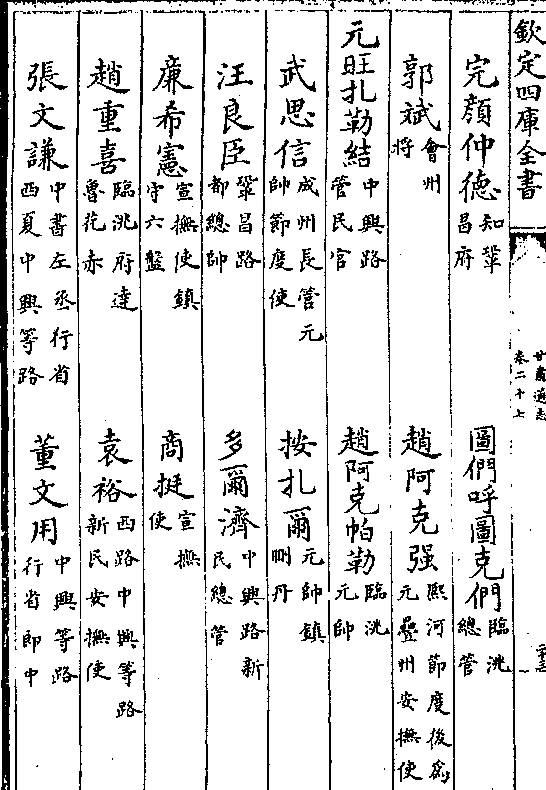 欽定四庫全書
甘肅通志
卷二十七
完顏仲德 知鞏昌府
圖們呼圖克們 臨洮總管
郭斌 會州將
趙阿克强 熙河節度後
元疊州安撫使
元旺扎勒結 中興路管民官
趙阿克帕勒 臨洮元帥
武思信 成州長管元帥節度使
按扎爾 元帥鎮刪丹
汪良臣 鞏昌路都總帥
多爾濟 中興路新民總管
廉希憲 宣撫使鎮守六盤
商挺 宣撫使
趙重喜 臨洮府達魯花赤
袁裕 西路中興等路新民安撫使
張文謙 中書左丞行省西夏中興等路
董文用 中興等路行省郎中